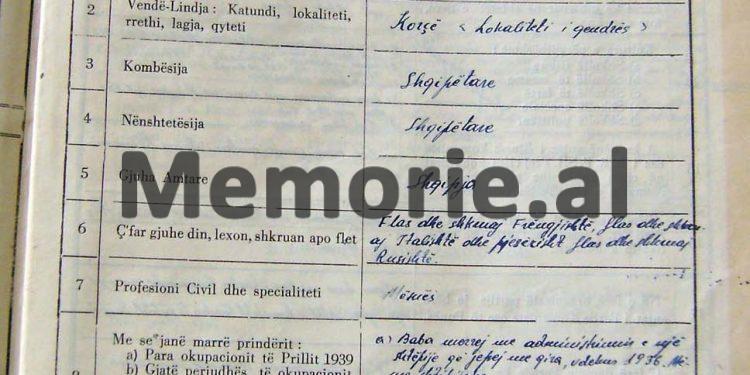 2
Vendë-Lindja : Katundi, lokaliteti,
rrethi, lagja, qyteti
Korçë < Lokaliteti i qendrës >
3
Kombësija
Shqipëtare
4
Nënshtetësija
Shqipëtare
Memorie.al
5
Gjuha Amtare
Shqipja
6
Ç'far gjuhe din, lexon, shkruan apo flet
Flas dhe shkruaj Frengjishtë, flas dhe shkru
aj Italishtë dhe pjesërisht flas dhe shkruaj
Rusishtë.
7
Profesioni Civil dhe specialiteti
8
Me se janë marrë prindërit :
a) Para okupacionit të Prillit 1939
b) Gjatë periudhës të okupacionit
a) Baba merrej me administrimin e një
shtëpije që jepej me qira, vdekur 1936.